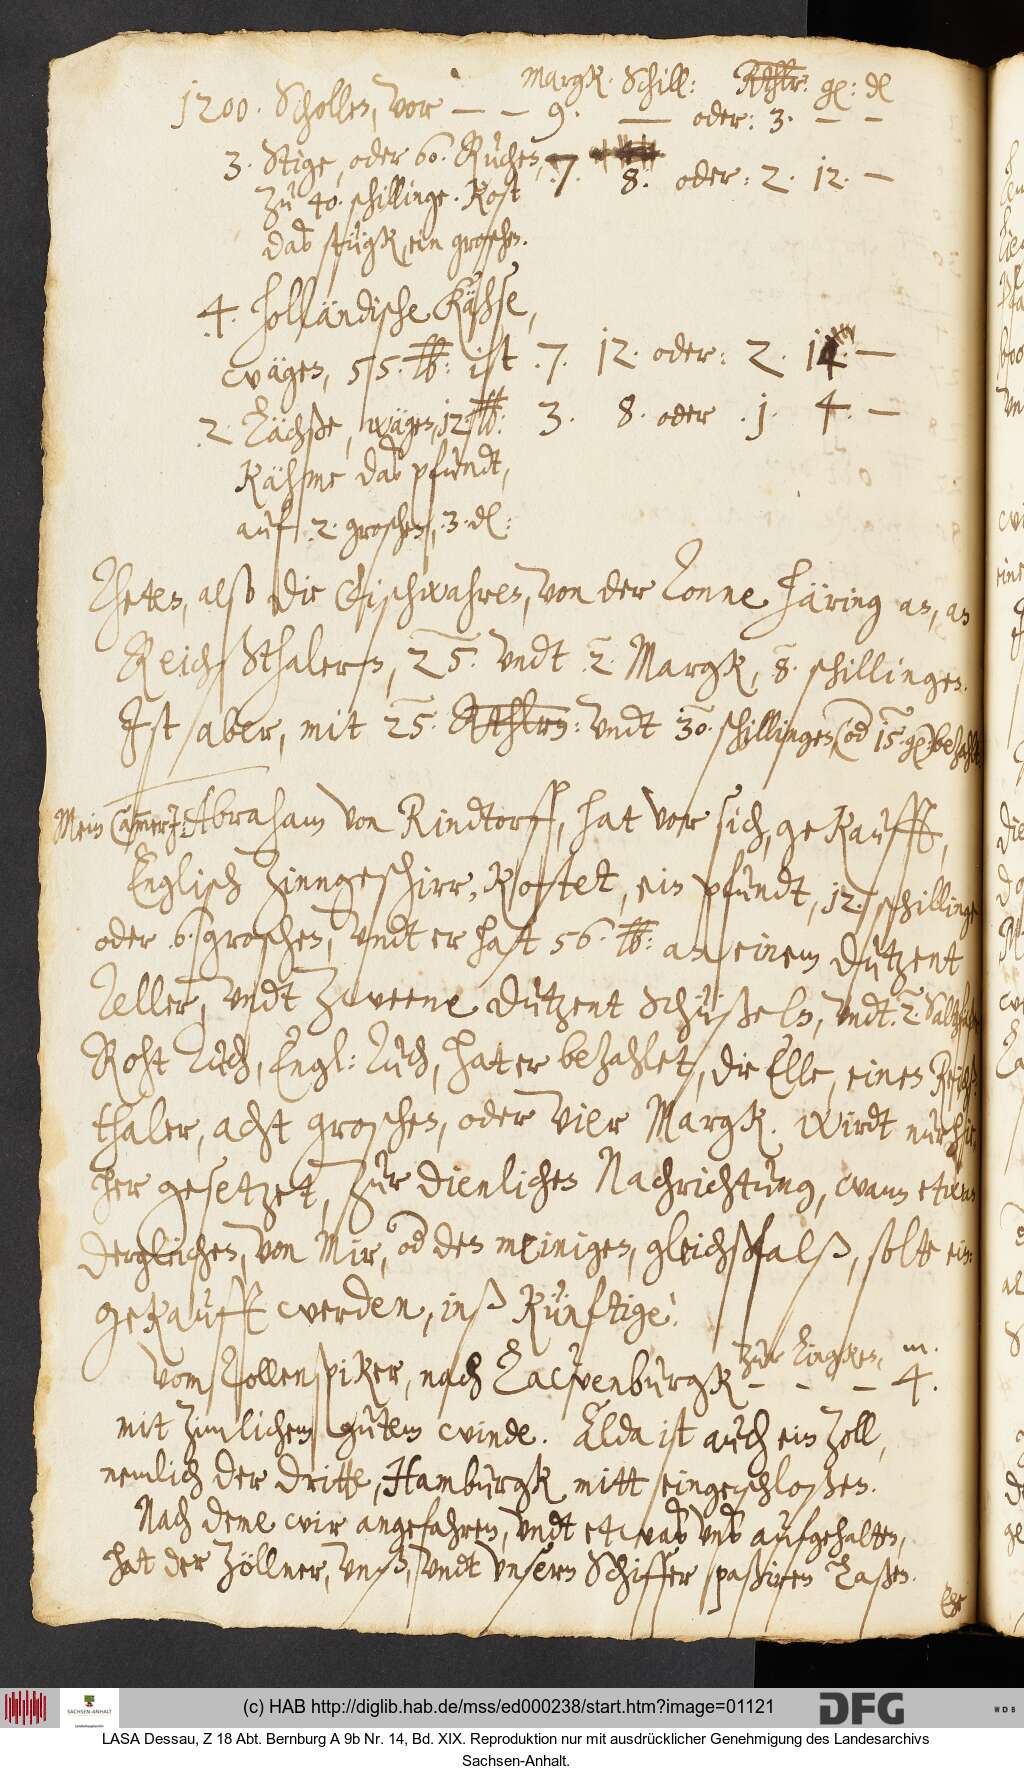 Margk. Schill: Rthlr: gl: dl
1200. Schollen, vor — — 9. — oder: 3. — —
3. Stige, oder 60. Ruchen, 7. 8. oder: 2. 12. —
zu 40. schillinge. Kost
das stügk, ein groschen.
4. Holländische Kähse,
wägen, 55. ℔: ist .7. 12. oder: 2. 14. —
2. Lächße, wägen, 12. ℔: 3. 8. oder .1. 4. —
Kähme das pfundt,
auf .2. groschen, .3. dl:
Theten, alß die Fischwahren, von der Tonne Häring an, an
Reichsthalern, 25. undt .2. Margk, 8. schillingen.
Ist aber, mit 25. Rthlrn: undt 30. schillingen, (od 15. gl) bezahlt
Mein CammerJ: Abraham von Rindtorff, hat vor sich, gekaufft,
Englisch Zinngeschirr, Kostet, ein pfundt, 12. schillinge
oder .6. groschen, undt er hat 56. ℔: an einem Dutzent
Teller, undt zweene Dutzent Schüßeln, undt .2. Saltzfaß
Roht Tuch, Engl: Tuch, hat er bezahlet, die Elle, einen Reichß
thaler, acht groschen, oder vier Margk. Wirdt nur hie
her gesetzet, zur dienlichen Nachrichtung, wann etwan
dergleichen, von Mir, od den meinigen, gleichßfalß, solte ein:
gekaufft werden, inß Künftige!
zur Lingken, m.
Vom Zollenspiker, nach Lawenburgk — — — 4.
mit zimlichem gutem winde. Alda ist auch ein Zoll,
nemlich der dritte, Hamburgk mitt eingeschloßen.
Nach deme wir angefahren, undt etwas uns aufgehalten,
hat der Zöllner, unß, undt unsern Schiffer paßiren laßen.
(c) HAB http://diglib.hab.de/mss/ed000238/start.htm?image=01121
SACHSEN-ANHALT
DFG
WDB
LASA Dessau, Z 18 Abt. Bernburg A 9b Nr. 14, Bd. XIX. Reproduktion nur mit ausdrücklicher Genehmigung des Landesarchivs
Sachsen-Anhalt.